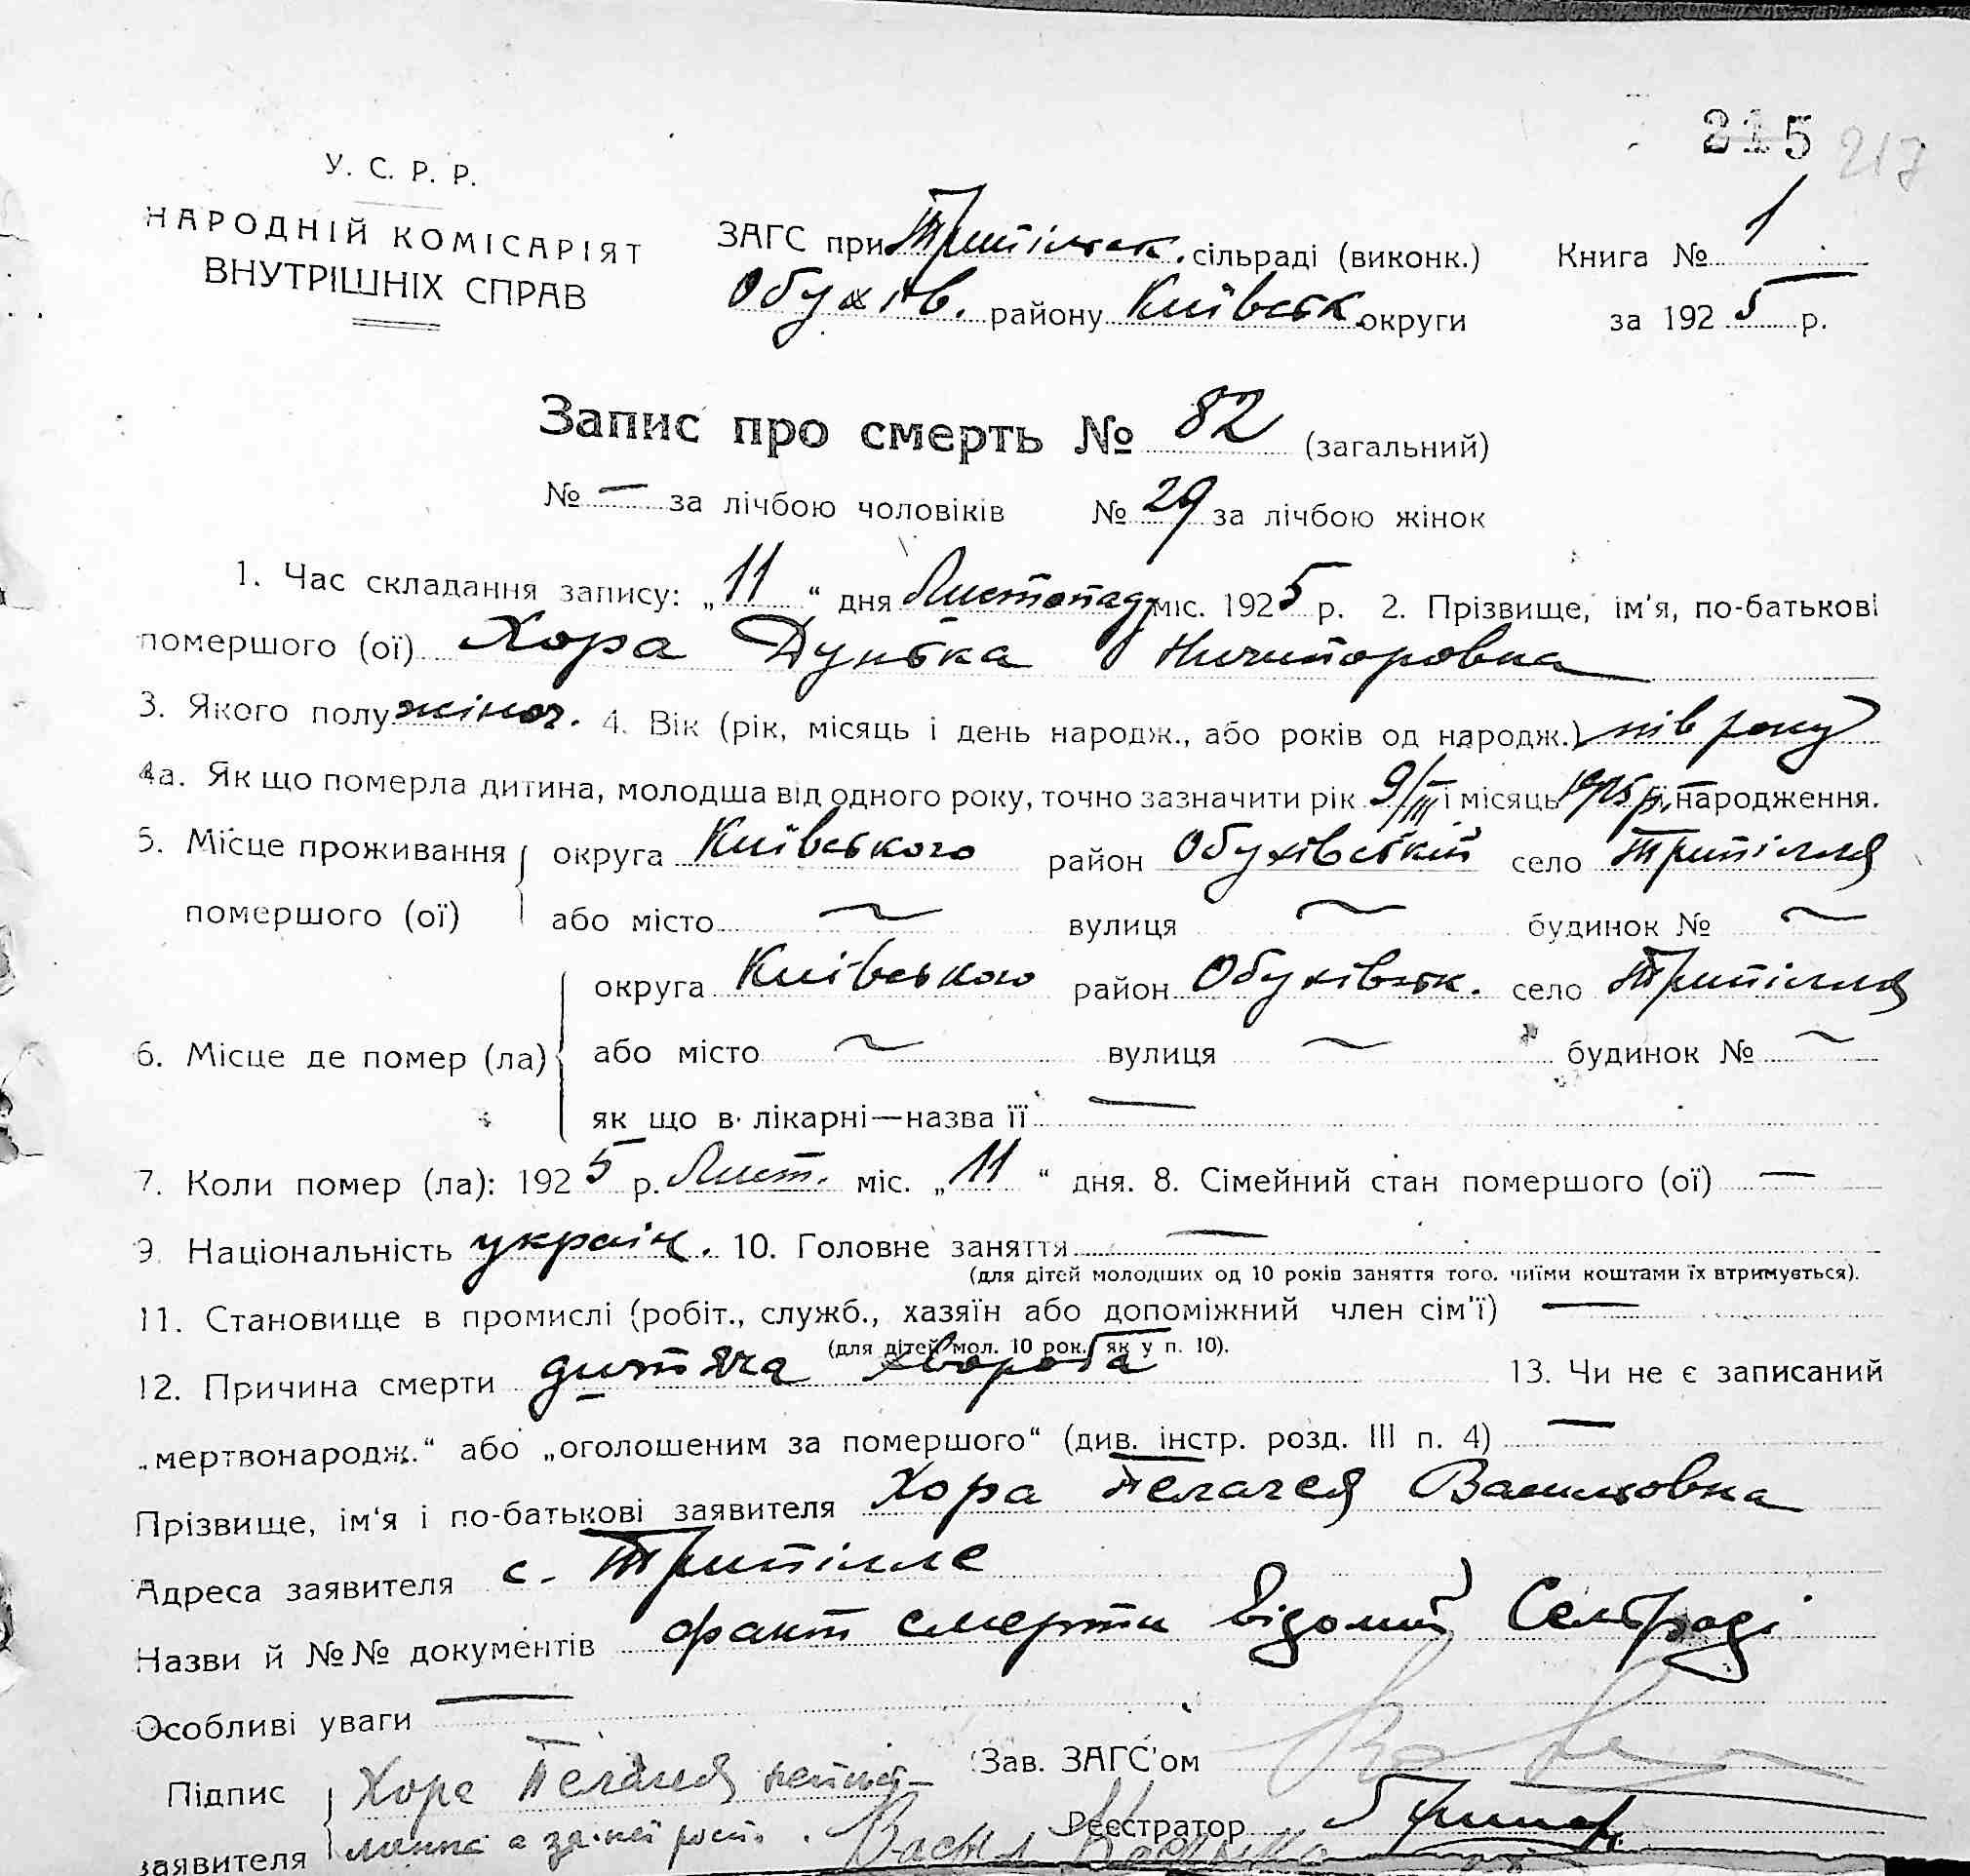 215 217
У. С. Р. Р.
НАРОДНІЙ КОМІСАРІЯТ
ВНУТРІШНІХ СПРАВ
ЗАГС при Трипільск. сільраді (виконк.)
Обухів. району Київськ. округи
Книга № 1
за 1925 р.
Запис про смерть № 82 (загальний)
№ — за лічбою чоловіків № 29 за лічбою жінок
1. Час складання запису: „11“ дня Листопаду міс. 1925 р. 2. Прізвище, ім'я, по-батькові
помершого (ої) Хора Дунька Ничипоровна
3. Якого полу жіноч. 4. Вік (рік, місяць і день народж., або років од народж.) пів року
4а. Як що померла дитина, молодша від одного року, точно зазначити рік 9/III і місяць 1925 р. її народження.
5. Місце проживання округа Київського район Обухівський село Трипілля
помершого (ої) або місто ~ вулиця ~ будинок № ~
округа Київського район Обухівськ. село Трипілля
6. Місце де помер (ла) або місто ~ вулиця ~ будинок № ~
як що в лікарні—назва її —
7. Коли помер (ла): 1925 р. Лист. міс. „11“ дня. 8. Сімейний стан помершого (ої) —
9. Національність україн. 10. Головне заняття —
(для дітей молодших од 10 років заняття того, чиїми коштами їх втримується).
11. Становище в промислі (робіт., служб., хазяїн або допоміжний член сім'ї) —
(для дітей мол. 10 рок. як у п. 10).
12. Причина смерти дитяча хвороба 13. Чи не є записаний
„мертвонародж.“ або „оголошеним за помершого“ (див. інстр. розд. III п. 4) —
Прізвище, ім'я і по-батькові заявителя Хора Пелагея Васильовна
Адреса заявителя с. Трипілле
Назви й №№ документів факт смерти відомий Сельраді
Особливі уваги —
Підпис Хора Пелагея Зав. ЗАГС'ом
заявителя а за неї рост. Реєстратор